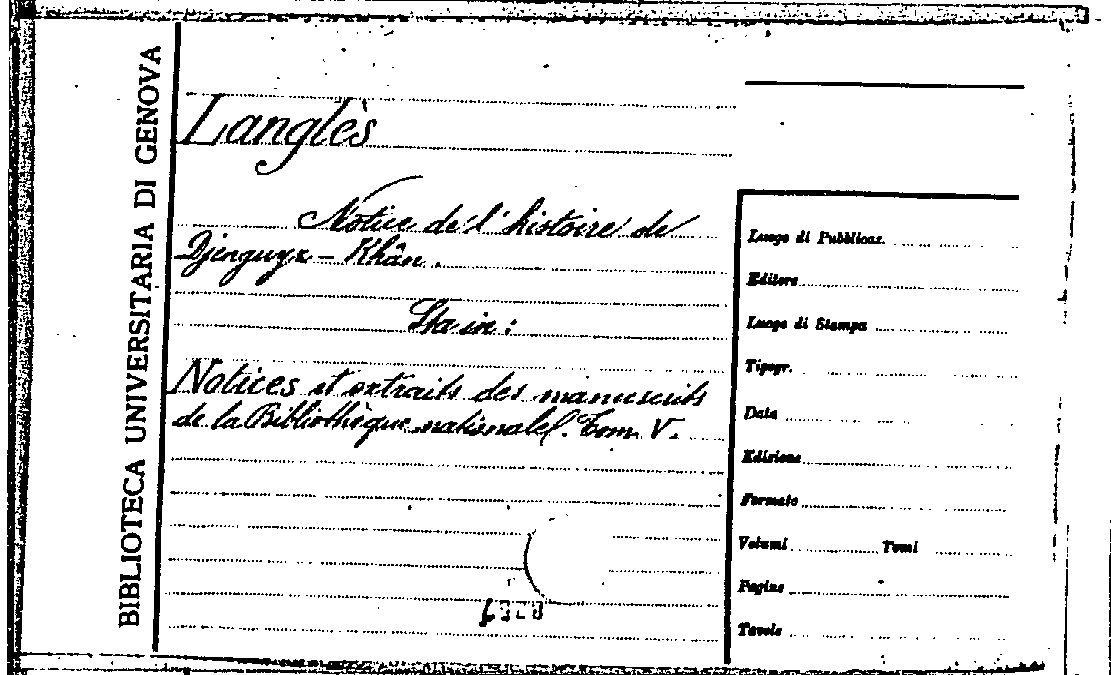 BIBLIOTECA UNIVERSITARIA DI GENOVA
Langlès
Notice de l'histoire de
Djenguyz - Khân.
Sta in:
Notices et extraits des manuscrits
de la Bibliothèque nationale. Tom. V.
Luogo di Pubblicaz.
Editore
Luogo di Stampa
Tipogr.
Data
Edizione
Formato
Volumi Tomi
Pagine
Tavole